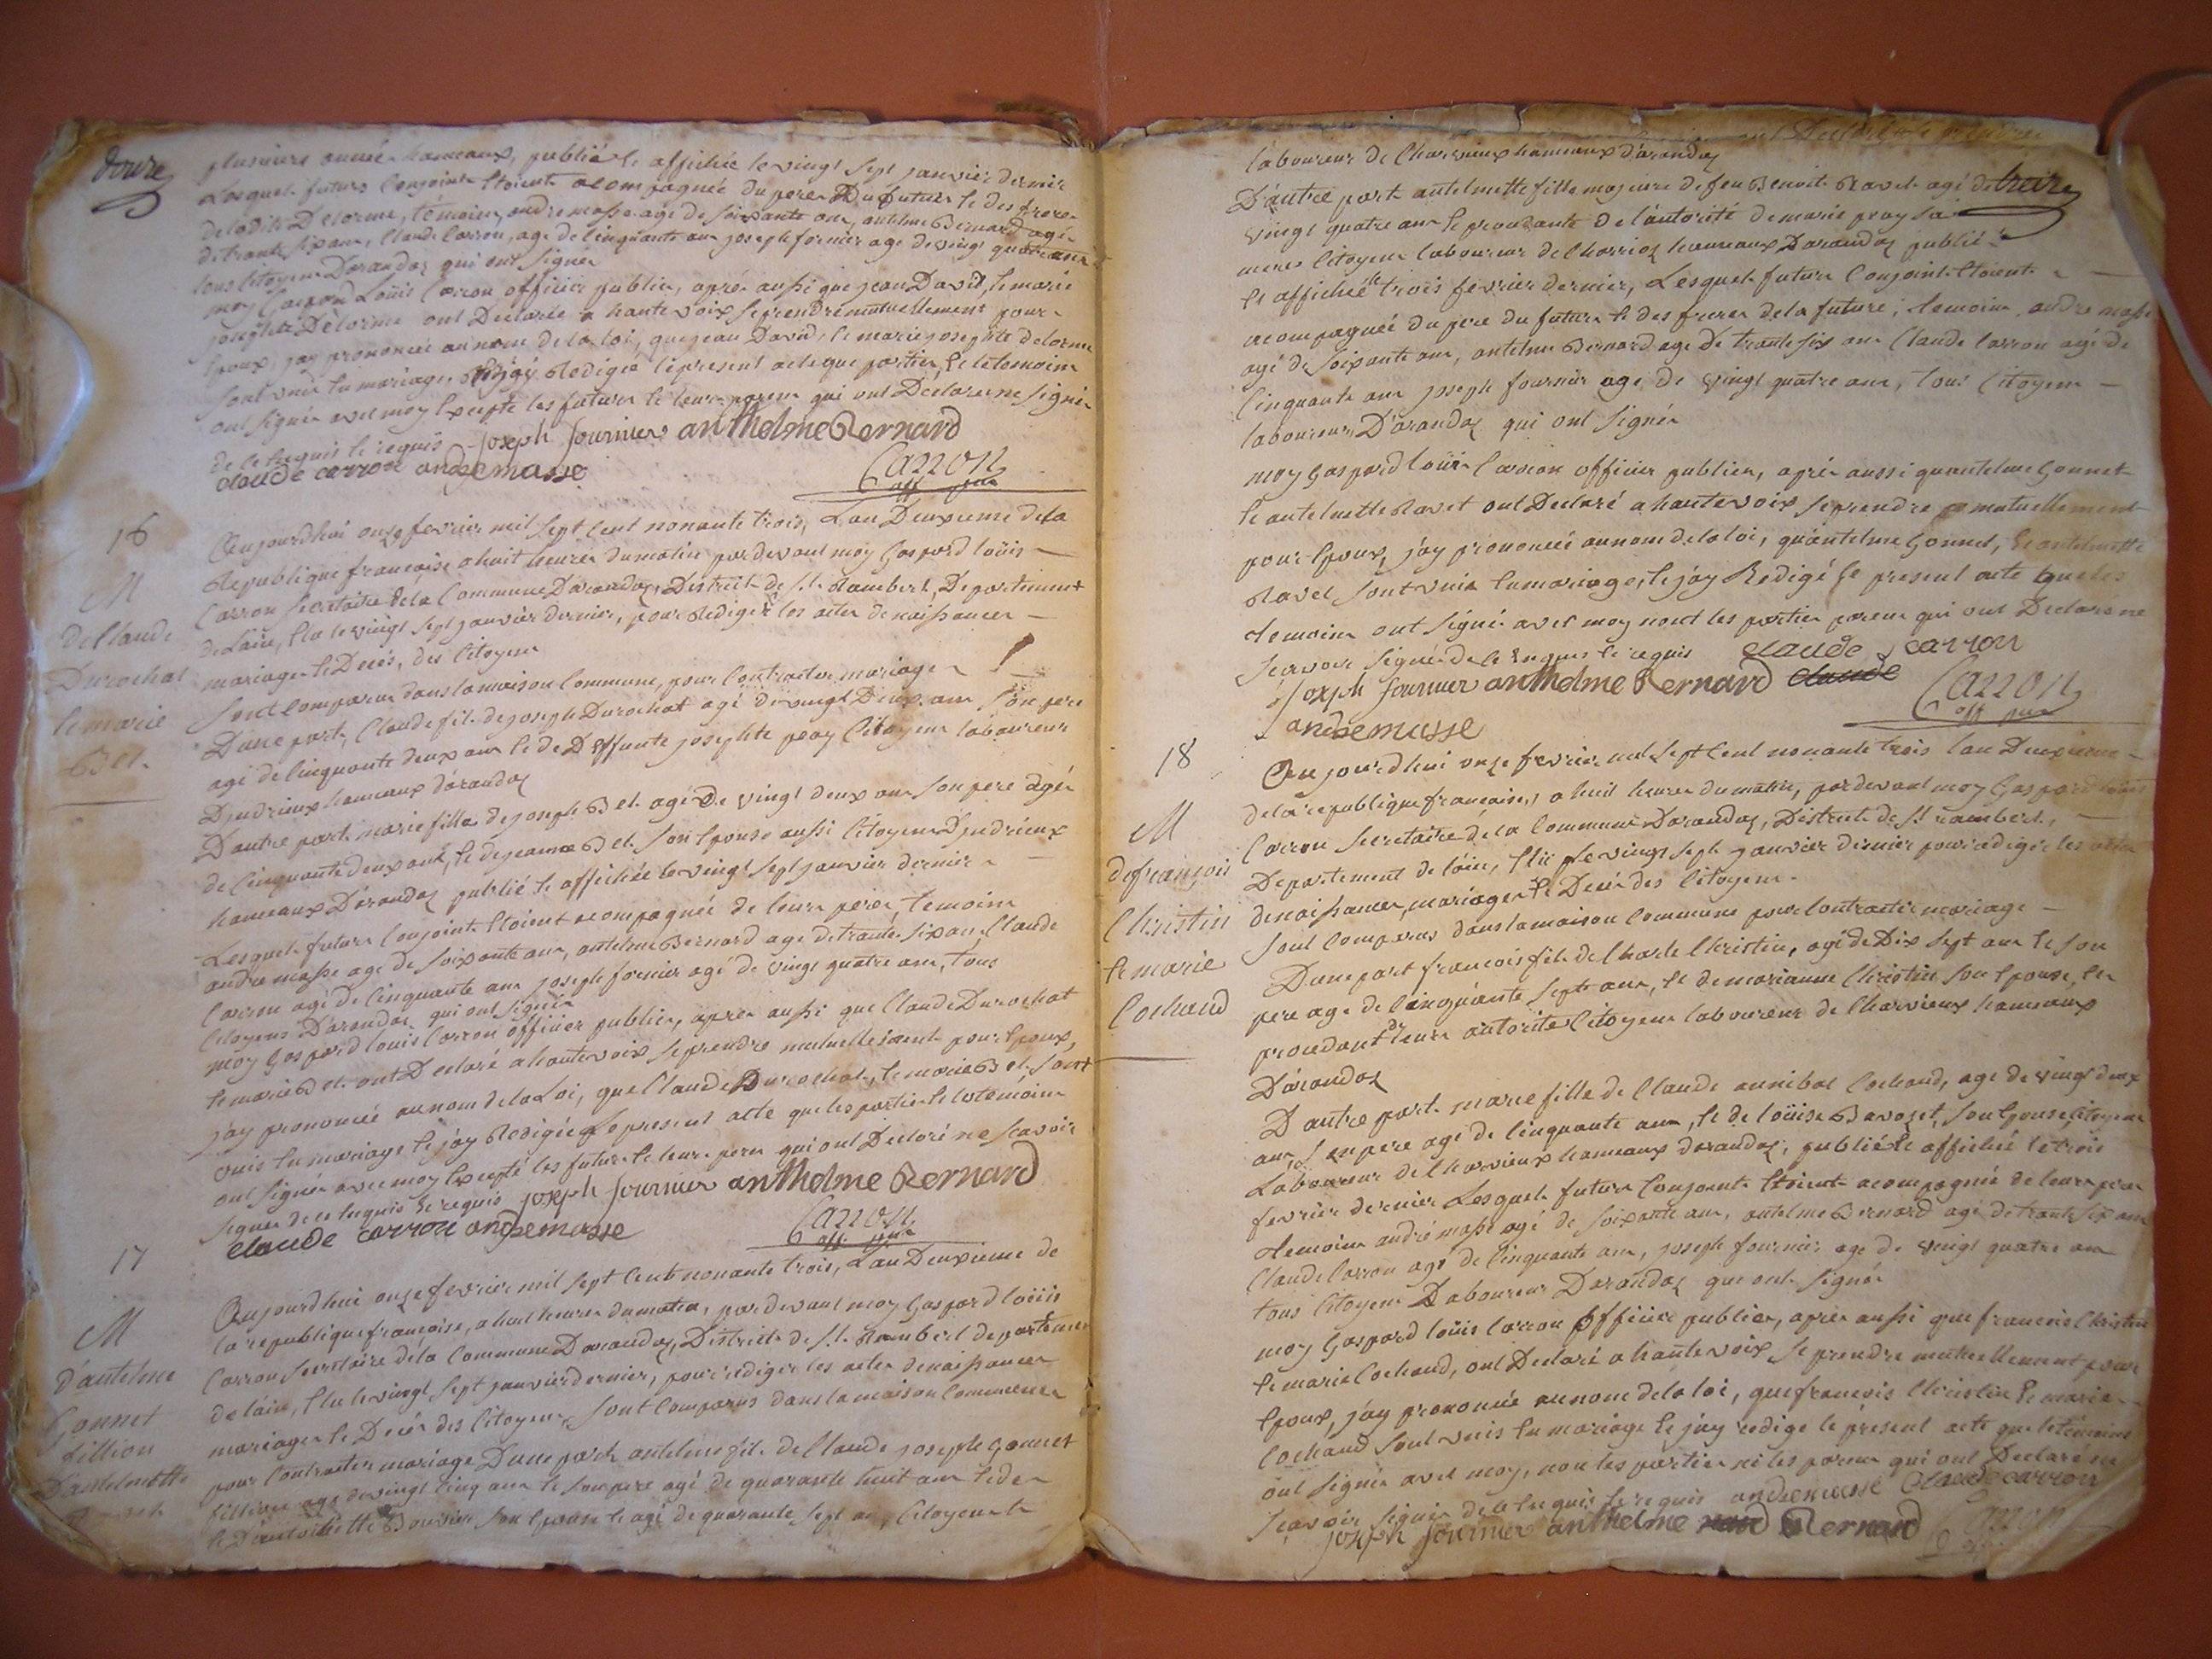 douze
plusieurs année hameaux, publié et affichée le vingt sept janvier dernier
Lesquels futurs conjoints étoient acompagnée du pere Du futur et des freres
de ladite Delorme, témoins, andre masse agé de soixante ans, antelme Bernard agé
de trante six ans, Claude Carron, agé de cinquante ans joseph fornier agé de vingt quatre ans
tous citoyens Darandas qui ont signer
moy Gaspard Louis Carron officier public, aprés aussi que jean David, et marie
josephte Delorme ont Declarée a haute voix se prendre mutuellement pour
Epoux, jay prononcée au nom de la loi, que jean David, et marie josephte delorme
sont unis en mariage, et jay Rédigée le present acte que parties, et le temoins
ont signée avec moy Excepté les futurs et leurs parens qui ont Declarer ne signer
de ce Enquis et requis joseph fournier anthelme Bernard
claude carron andre masse Carron
off. pub.
16
M
de Claude
Durochat
et marie
Bel.
Aujourdhui onze fevrier mil sept cent nonante trois, L'an Deuxieme de la
Republique francaise a huit heures du matin pardevant moy Gaspard louis
Carron secretaire de la Commune Darandas, District de St. Rambert, Departement
de Lain, Elu le vingt sept janvier dernier, pour Rediger les actes de naissances
mariages et Decés, des citoyens
sont comparus dans la maison commune, pour contracter mariage
D'une part, Claude fils de joseph Durochat agé de vingt Deux ans son pere
agé de cinquante deux ans et de Deffunte josephte peay Citoyens laboureurs
Djndrieux hameaux darandas
D'autre part marie fille de joseph Bel agé de vingt deux ans son pere agé
de cinquante deux ans, et de jeanne Bel son Epouse aussi citoyens Djndrieux
hameaux Darandas publié et affichée le vingt sept janvier dernier
Lesquels futurs conjoints étoient acompagnée de leurs peres, temoins
andre masse agé de soixante ans, antelme Bernard agé de trante six ans Claude
Carron agé de cinquante ans joseph fornier agé de vingt quatre ans, tous
citoyens Darandas qui ont signér
moy Gaspard louis Carron officier public, aprés aussi que Claude Durochat
et marie Bel ont Declaré a haute voix se prendre mutuellement pour Epoux,
j'ay prononcée au nom de la Loi, que Claude Durochat, et marie Bel sont
unis en mariage et j'ay Redigée Le present acte que les parties et le temoins
ont signée avec moy Excepté les futurs et leurs peres qui ont Declaré ne scavoir
signer de ce Enquis et requis joseph fournier anthelme Bernard
claude carron andre masse Carron
off. pub.
17
M
d'antelme
Gonnet
fillion
D'antelmette
Aujourdhui onze fevrier mil sept cent nonante trois, L'an Deuxieme de
la republique francoise, a huit heures du matin, pardevant moy Gaspard louis
Carron secretaire de la commune Darandas, District de St. Rambert departement
de lain, Elu le vingt sept janvier dernier, pour rediger les actes de naissances
mariages et Decés des citoyens sont comparus dans la maison commune
pour contracter mariage D'une part antelme fils de Claude joseph Gonnet
fillion agé de vingt cinq ans et son pere agé de quarante huit ans et de
son Epouse et agé de quarante sept ans, citoyens
laboureurs de Charvieux hameaux d'arandas
treize
D'autre part antelmette fille majeure de feu Benoit Ravet agé de
vingt quatre ans et procedante de l'autorité de marie peay sa
mere citoyens laboureur de Charvieux hameaux Darandas publié
et affichée le trois fevrier dernier, Lesquels futurs conjoints étoient
acompagnée du pere du futur et des freres de la future; temoins andre masse
agé de soixante ans, antelme Bernard agé de trante six ans Claude Carron agé de
cinquante ans joseph fournier agé de vingt quatre ans, tous citoyens
laboureurs D'arandas qui ont signér
moy Gaspard louis Carron officier public, aprés aussi qu'antelme Gonnet
et antelmette Ravet ont Declaré a haute voix se prendre mutuellement
pour Epoux, j'ay prononcée au nom de la loi, qu'antelme Gonnet, et antelmette
Ravet sont unis en mariage, et jay Redigé le present acte que les
temoins ont signé avec moy nont les parties parens qui ont Declaré ne
scavoir signér de ce Enquis et requis claude carron
joseph fournier anthelme Bernard claude Carron
andre masse off. pub.
18
M
de françois
Christin
et marie
Cochand
Aujourdhui onze fevrier mil sept cent nonante trois lan Deuxieme
de la republique francaise, a huit heures du matin, pardevant moy Gaspard louis
Carron Secretaire de la commune Darandas, District de St rambert,
Departement de láin, Elu le vingt sept janvier dernier pour rediger les actes
de naissances, mariages et Decés des citoyens
sont comparus dans la maison commune pour contracter mariage
D'une part francois fils de Charle Christin, agé de Dix sept ans et son
pere agé de cinquante sept ans, et de marianne Christin son Epouse, et
procedant de leurs autorité citoyens laboureurs de Charvieux hameaux
Darandas
D'autre part marie fille de Claude annibal Cochand, agé de vingt deux
ans, son pere agé de cinquante ans, et de loüise Bavozet, son Epouse, citoyens
Laboureur de Charvieux hameaux darandas, publiée et affichée le trois
fevrier dernier Lesquels futurs conjoints étoient acompagnié de leurs peres
temoins andré masse agé de soixante ans, antelme Bernard agé de trante six ans
Claude Carron agé de cinquante ans, joseph fournier agé de vingt quatre ans
tous citoyens Laboureurs Darandas qui ont signér
moy Gaspard loüis Carron officier public, aprés aussi que francois Christin
et marie Cochand, ont Declaré a haute voix se prendre mutuellement pour
Epoux, j'ay prononcée au nom de la loi, que francois Christin et marie
Cochand sont unis en mariage et jay redigé le present acte que le temoins
ont signér avec moy, non les parties ni les parens qui ont Declaré ne
scavoir signér de ce Enquis et requis andre masse Claude carron
joseph fournier anthelme Bernard Carron